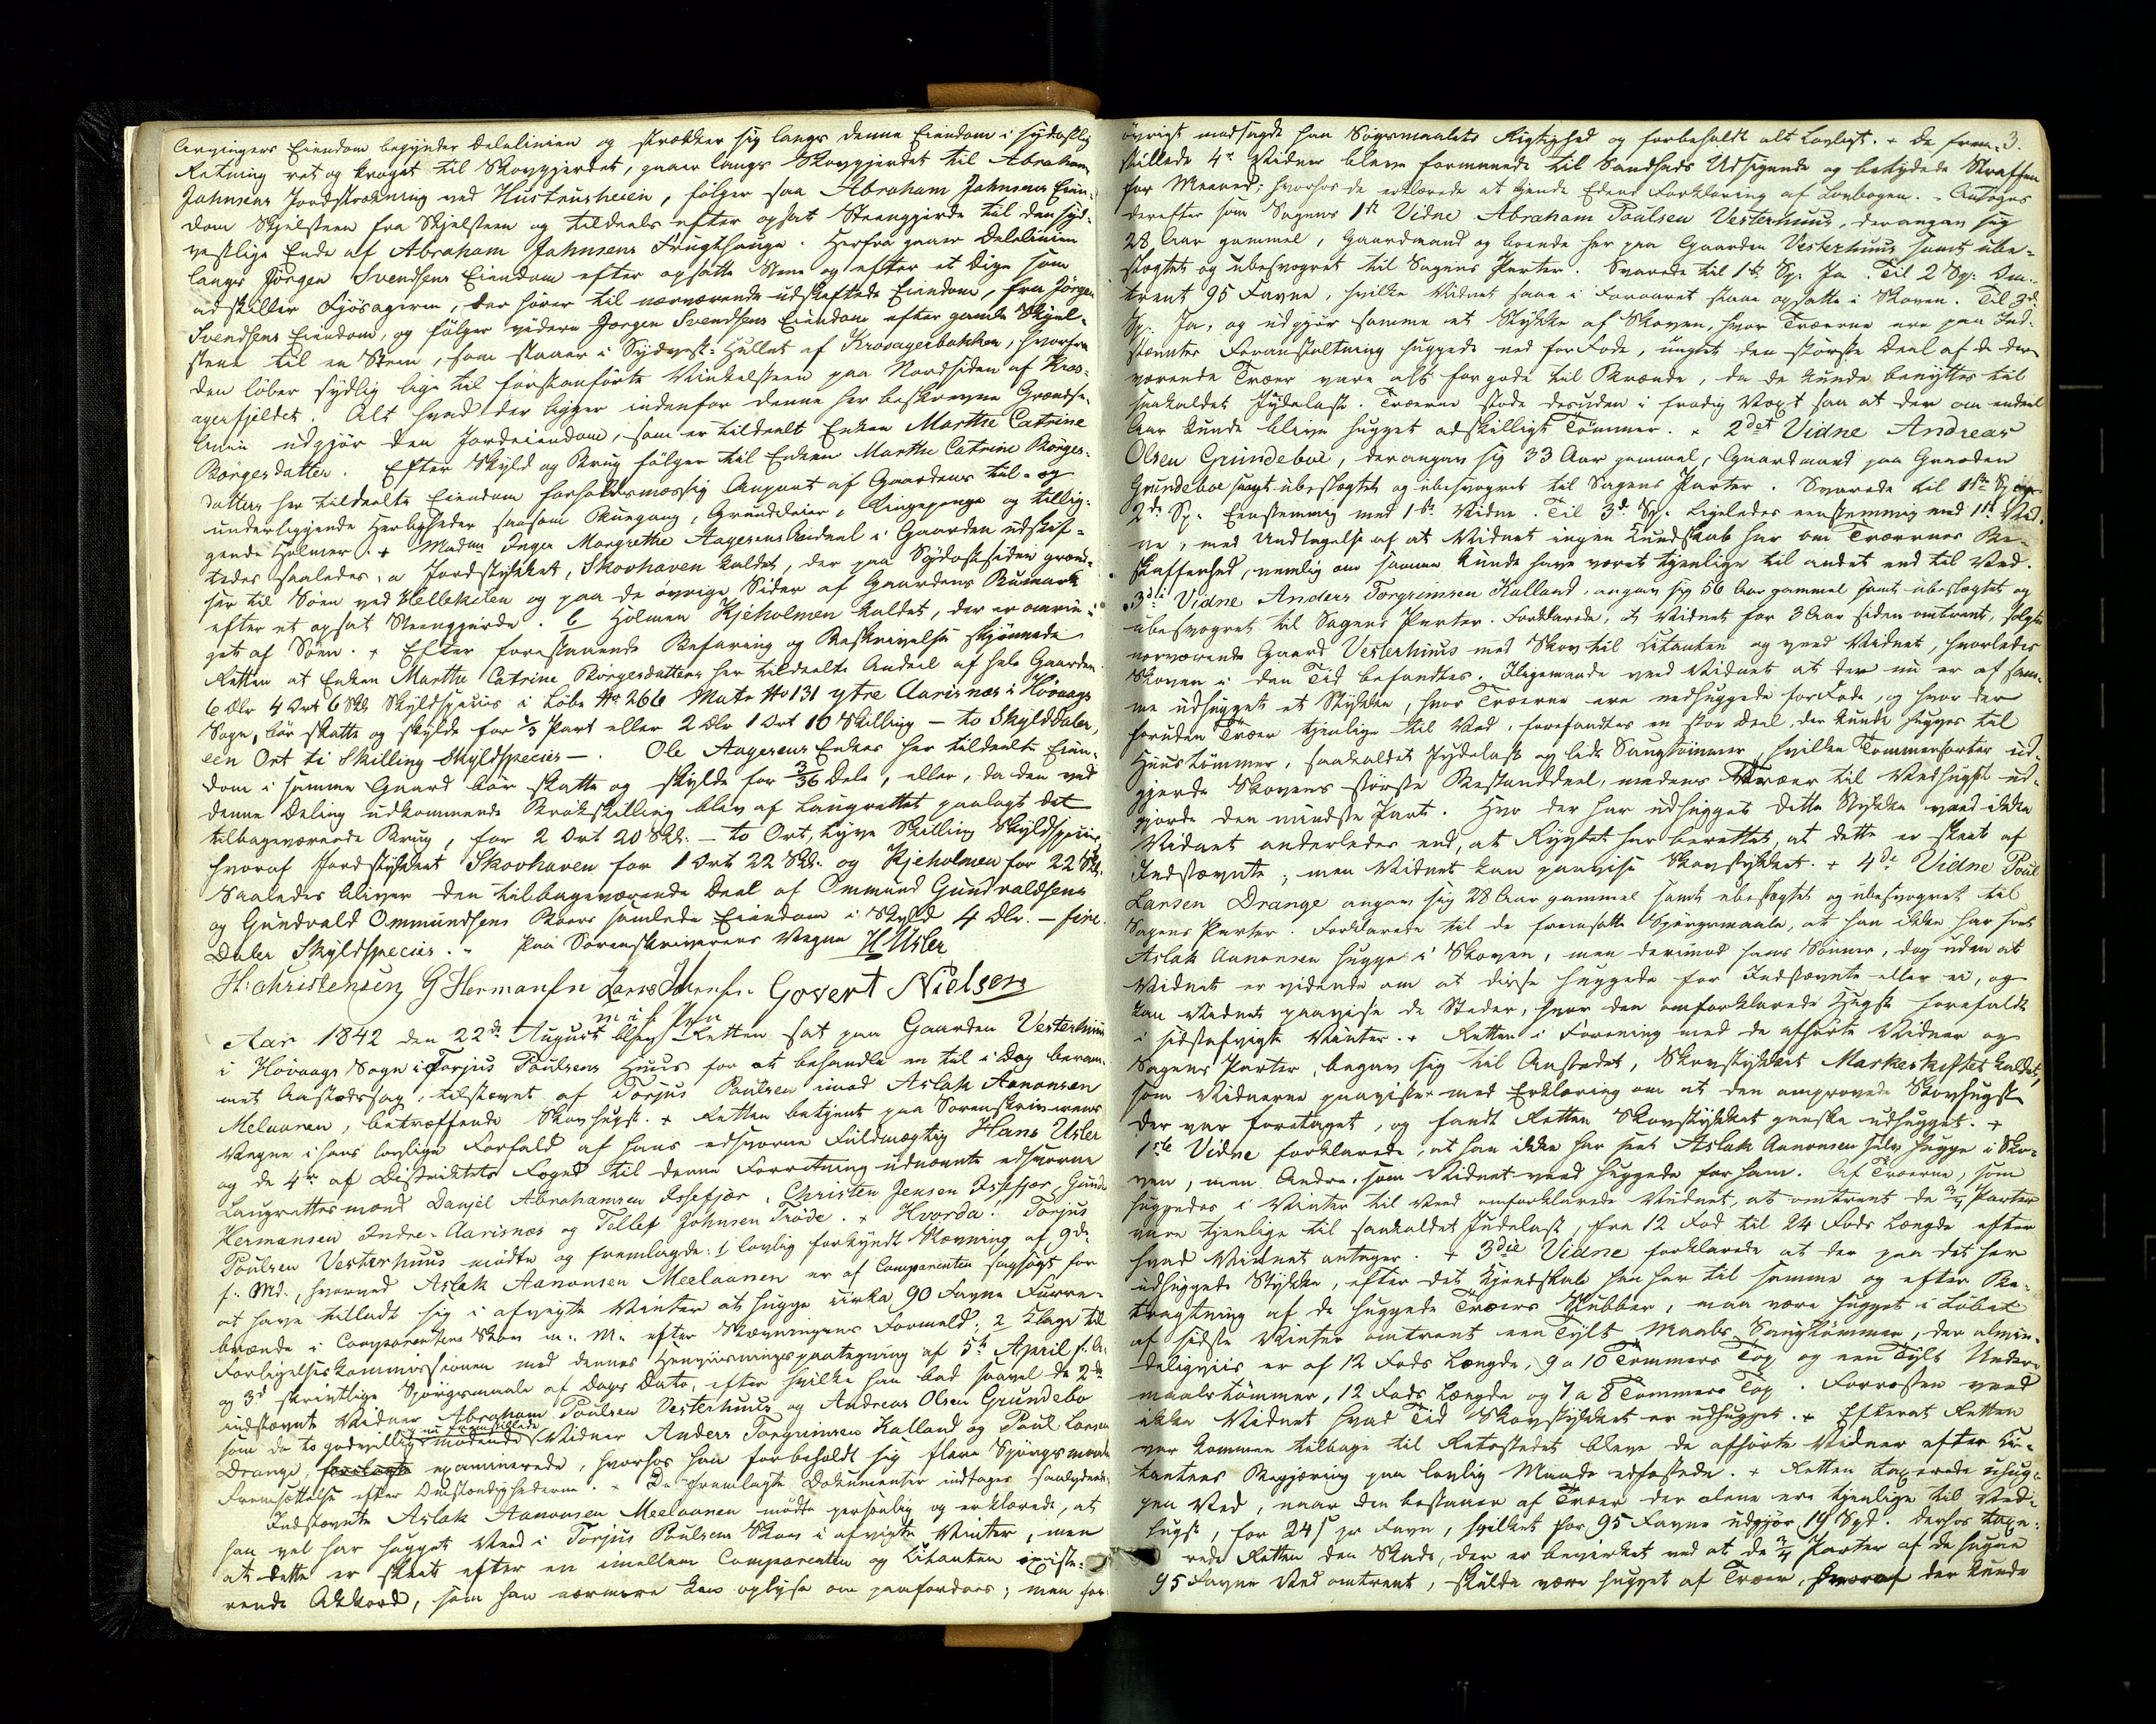 Arvingers Eiendom begynder Delelinien og strækker sig langs denne Eiendom i sydostlig
Retning ret og kroget til Skovgjerdet, gaaer langs Skovgjerdet til Abraham
Jahnsens Jordstrækning ved Hustrusheien, følger saa Abraham Jahnsens Eien-
dom Skjelsteen fra Skjelsteen og tildeels efter opsat Steengjerde til den syd-
vestlige Ende af Abraham Jahnsens Frugthauge. Herfra gaaer Delelinien
langs Jörgen Svendsens Eiendom efter opsatte Stene og efter et Dige som
adskiller Fjösageren, der hører til nærværende udskiftede Eiendom, fra Jörgen
Svendsens Eiendom, og følger videre Jörgen Svendsens Eiendom efter gamle Skjel-
stene til en Steen, som staaer i Sydvest-Hullet af Krosagerbakken, hvorfra
den løber sydlig lige til förstanførte Vinkelsteen paa Nordsiden af Kros-
agerfjeldet. Alt hvad der ligger indenfor denne her beskrevne Grændse-
linie udgjør den Jordeiendom, som er tildeelt Enken Marthe Catrine
Börgesdatter. Efter Skyld og Brug følger til Enken Marthe Catrine Börges-
datters her tildeelte Eiendom forholdsmæssig Anpart af Gaardens til- og
underliggende Herligheder saasom Buegang, Grundleier, Tingepenge og tillig-
gende Holmer. + Madm Inger Margrethe Aagesens Andeel i Gaarden udskif-
tedes saaledes: a Jordstykket, Skovhaven kaldet, der paa Sydostsiden grænd-
ser til Søen ved Hellekilen og paa de øvrige Sider af Gaardens Bumark
efter et opsat Steengjerde. b Holmen Kjeholmen kaldet, der er omrin-
get af Søen. + Efter forestaaende Befaring og Beskrivelse skjønnede
Retten at Enken Marthe Catrine Börgesdatters her tildeelte Andeel af hele Gaarden
6 Dlr 4 Ort 6 Skl Skyldspecies i Løbe No 266 Matr No 131 ytre Aarisnæs i Hövaags
Sogn, bør skatte og skylde for 1/3 Part eller 2 Dlr 1 Ort 10 Skilling — to Skylddaler,
een Ort ti Skilling Skyldspecies —. Ole Aagesens Enkes her tildeelte Eien-
dom i samme Gaard bør skatte og skylde for 3/36 Dele, eller, da den ved
denne Deling udkommende Brökskilling blev af Laugrettet paalagt det
tilbageværende Brug, for 2 Ort 20 Skl. — to Ort, tyve Skilling Skyldspecies,
hvoraf Jordstykket Skovhaven for 1 Ort 22 Skl. og Kjeholmen for 22 Skl.
Saaledes bliver den tilbageværende Deel af Ommund Gundvaldsens
og Gundvald Ommundsens Boers samlede Eiendom i Skyld 4 Dlr. — fire
Daler Skyldspecies. " Paa Sorenskriverens Vegne H Usler
H: Christensen G Hermansen Lars Jensen Govert Nielsen
m i f Pen
Aar 1842 den 22de August blev Retten sat paa Gaarden Vesterhuus
i Hövaags Sogn i Torjus Poulsens Huus for at behandle en til i Dag beram-
met Aastedssag, tilstævnt af Torjus Poulsen imod Aslak Aanonsen
Melaanen, betræffende Skovhugst. + Retten betjent paa Sorenskriverens
Vegne i hans lovlige Forfald af hans edsvorne Fuldmægtig Hans Usler
og de 4re af Districtets Foged til denne Forretning udnævnte edsvorne
Laugrettesmænd Danjel Abrahamsen Issefjær, Christen Jensen Issefjær, Gunde
Hermansen Indre-Aarisnæs og Tellef Johnsen Tröde. + Hvorda! Torjus
Poulsen Vesterhuus mødte og fremlagde: 1 lovlig forkyndt Stævning af 9de
f. Md., hvorved Aslak Aanonsen Meelaanen er af Comparenten sagsøgt for
at have tilladt sig i afvigte Vinter at hugge cirka 90 Favne Furre-
brænde i Comparentens Skov m. M. efter Stævningens Formeld; 2 Klage til
Forligelseskommissionen med dennes Henviisningspaategning af 5te April f. A.
og 3d skriftlige Spörgsmaale af Dags Dato, efter hvilke han bad saavel de 2de
indstævnte Vidner Abraham Poulsen Vesterhuus og Andreas Olsen Grundebo
som de to godvillig mødende nu fremstillede Vidner Anders Torgrimsen Kalland og Poul Larsen
Drange, examinerede, hvorhos han forbeholdt sig flere Spörgsmaals
Fremsættelse efter Omstændighederne. + De fremlagte Dokumenter indtages saalydende.
Indstævnte Aslak Aanonsen Meelaanen mødte personlig og erklærede, at
han vel har hugget Veed i Torjus Poulsens Skov i afvigte Vinter, men
at dette er skeet efter en imellem Comparenten og Citanten existe-
rende Akkord, som han nærmere kan oplyse om paafordres; men for
øvrigt modsagde han Søgsmaalets Rigtighed og forbeholdt alt Lovligt. + De frem- 3.
stillede 4re Vidner bleve formanede til Sandheds Udsigende og betydede Straffen
for Meened; hvorhos de erklærede at kjende Edens Forklaring af Lovbogen. - Antoges
derefter som Sagens 1ste Vidne Abraham Poulsen Vesterhuus, der angav sig
28 Aar gammel, Gaardmand og boende her paa Gaarden Vesterhuus samt ube-
slægtet og ubesvogret til Sagens Parter. Svarede til 1ste Sp: Ja. Til 2 Sp: Om-
trent 95 Favne, hvilke Vidnet saae i Foraaret staae opsatte i Skoven. Til 3de
Sp. Ja, og udgjør samme et Stykke af Skoven, hvor Træerne ere paa Ind-
stævntes Foranstaltning huggede ned forFode, uagtet den største Deel af de der-
værende Træer vare alt for gode til Brænde, da de kunde benyttes til
saakaldet Jydelast. Træerne stode desuden i frodig Vext saa at der om endeel
Aar kunde blive hugget adskilligt Tömmer. + 2det Vidne Andreas
Olsen Grundeboe, der angav sig 33 Aar gammel, Gaardmand paa Gaarden
Grundeboe samt ubeslægtet og ubesvogret til Sagens Parter Svarede til 1ste Sp. og
2de Sp. Eenstemmig med 1ste Vidne. Til 3de Sp. Ligeledes eenstemmig med 1ste Vid-
ne, med Undtagelse af at Vidnet ingen Kundskab har om Træernes Be-
skaffenhed, nemlig om samme kunde have været tjenlige til andet end til Ved.
3die Vidne Anders Torgrimsen Kalland, angav sig 56 Aar gammel samt ubeslægtet og
ubesvogret til Sagens Parter. Forklarede, at Vidnet for 3 Aar siden omtrent, solgte
nærværende Gaard Vesterhuus med Skov til Citanten og veed Vidnet, hvorledes
Skoven i den Tid befandtes. Ligemaade veed Vidnet at der nu er af sam-
me udhugget et Stykke, hvor Træerne ere nedhuggede forFode, og hvor der
foruden Træer tjenlige til Ved, forefandtes en stor Deel, der kunde hugges til
Huustömmer, saakaldet Jydelast og lidt Saugtömmer, hvilke Tömmersorter ud-
gjorde Skovens største Bestanddeel, medens Træer til Vedhugst ud-
gjorde den mindste Part. Hvo der har udhugget dette Stykke veed ikke
Vidnet anderledes end, at Rygtet har berettet, at dette er skeet af
Indstævnte; men Vidnet kan paavise Skovstykket. + 4de Vidne Poul
Larsen Drange angav sig 28 Aar gammel samt ubeslægtet og ubesvogret til
Sagens Parter. Forklarede til de fremsatte Spörgsmaale, at han ikke har seet
Aslak Aanonsen hugge i Skoven, men derimod hans Sønner, dog uden at
Vidnet er vidende om at disse huggede for Indstævnte eller ei, og
kan Vidnet paavise de Steder, hvor den omforklarede Hugst forefaldt
i sidstafvigte Vinter. + Retten i Forening med de afhørte Vidner og
Sagens Parter, begav sig til Aastedet, Skovstykket Markeskiftet kaldet,
som Vidnerne paaviste med Erklæring om at den omprovede Skovhugst
der var foretaget, og fandt Retten Skovstykket ganske udhugget. +
1ste Vidne forklarede, at han ikke har seet Aslak Aanonsen selv hugge i Sko-
ven, men Andre, som Vidnet veed huggede for ham. Af Træerne, som
huggedes i Vinter til Veed omforklarede Vidnet, at omtrent de 3/4 Parter
vare tjenlige til saakaldet Judelast, fra 12 Fod til 24 Fods Længde efter
hvad Vidnet antager. + 3die Vidne forklarede at der paa det her
udhuggede Stykke, efter det Kjendskab han har til samme og efter Be-
tragtning af de huggede Træers Stubber, maa være hugget i Løbet
af sidste Vinter omtrent een Tylt Maals Saugtömmer, der almin-
deligviis er af 12 Fods Længde, 9 a 10 Tommers Top og een Tylt Under-
maalstömmer, 12 Fods Længde og 7 a 8 Tommers Top. Forresten veed
ikke Vidnet hvad Tid Skovstykket er udhugget. + Efterat Retten
var kommen tilbage til Retsstedet bleve de afhørte Vidner efter Ci-
tantens Begjæring paa lovlig Maade edfæstede. + Retten taxerede uhug-
gen Ved, naar den bestaaer af Træer der alene ere tjenlige til Ved-
hugst, for 24 s pr Favn, hvilket for 95 Favne udgjør 19 Spd. derhos taxe-
rede Retten den Skade, der er bevirket ved at de 3/4 Parter af de hugne
95 Favne Ved omtrent, skulde være hugget af Træer, hvoraf der kunde